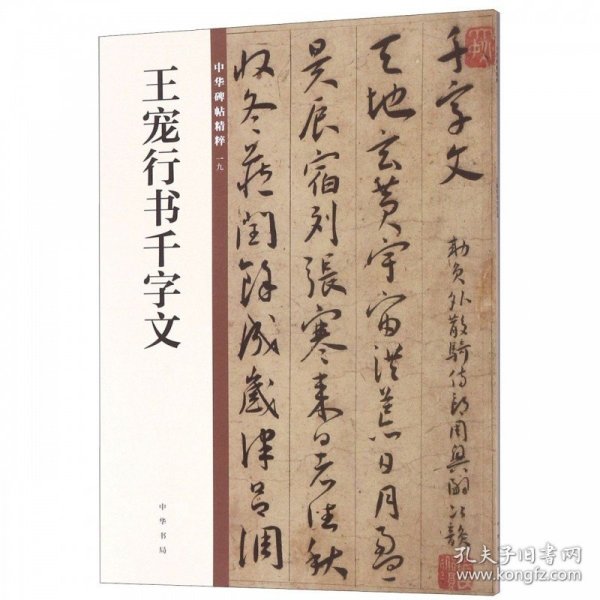 王宠行书千字文
中华书局
中华碑帖精粹 一九
千字文
勑員外散騎侍郎周興嗣次韻
天地玄黄宇宙洪荒日月盈
昃辰宿列張寒来暑往秋
收冬藏閏餘成歲律吕調
孔夫子旧书网
www.kongfz.com